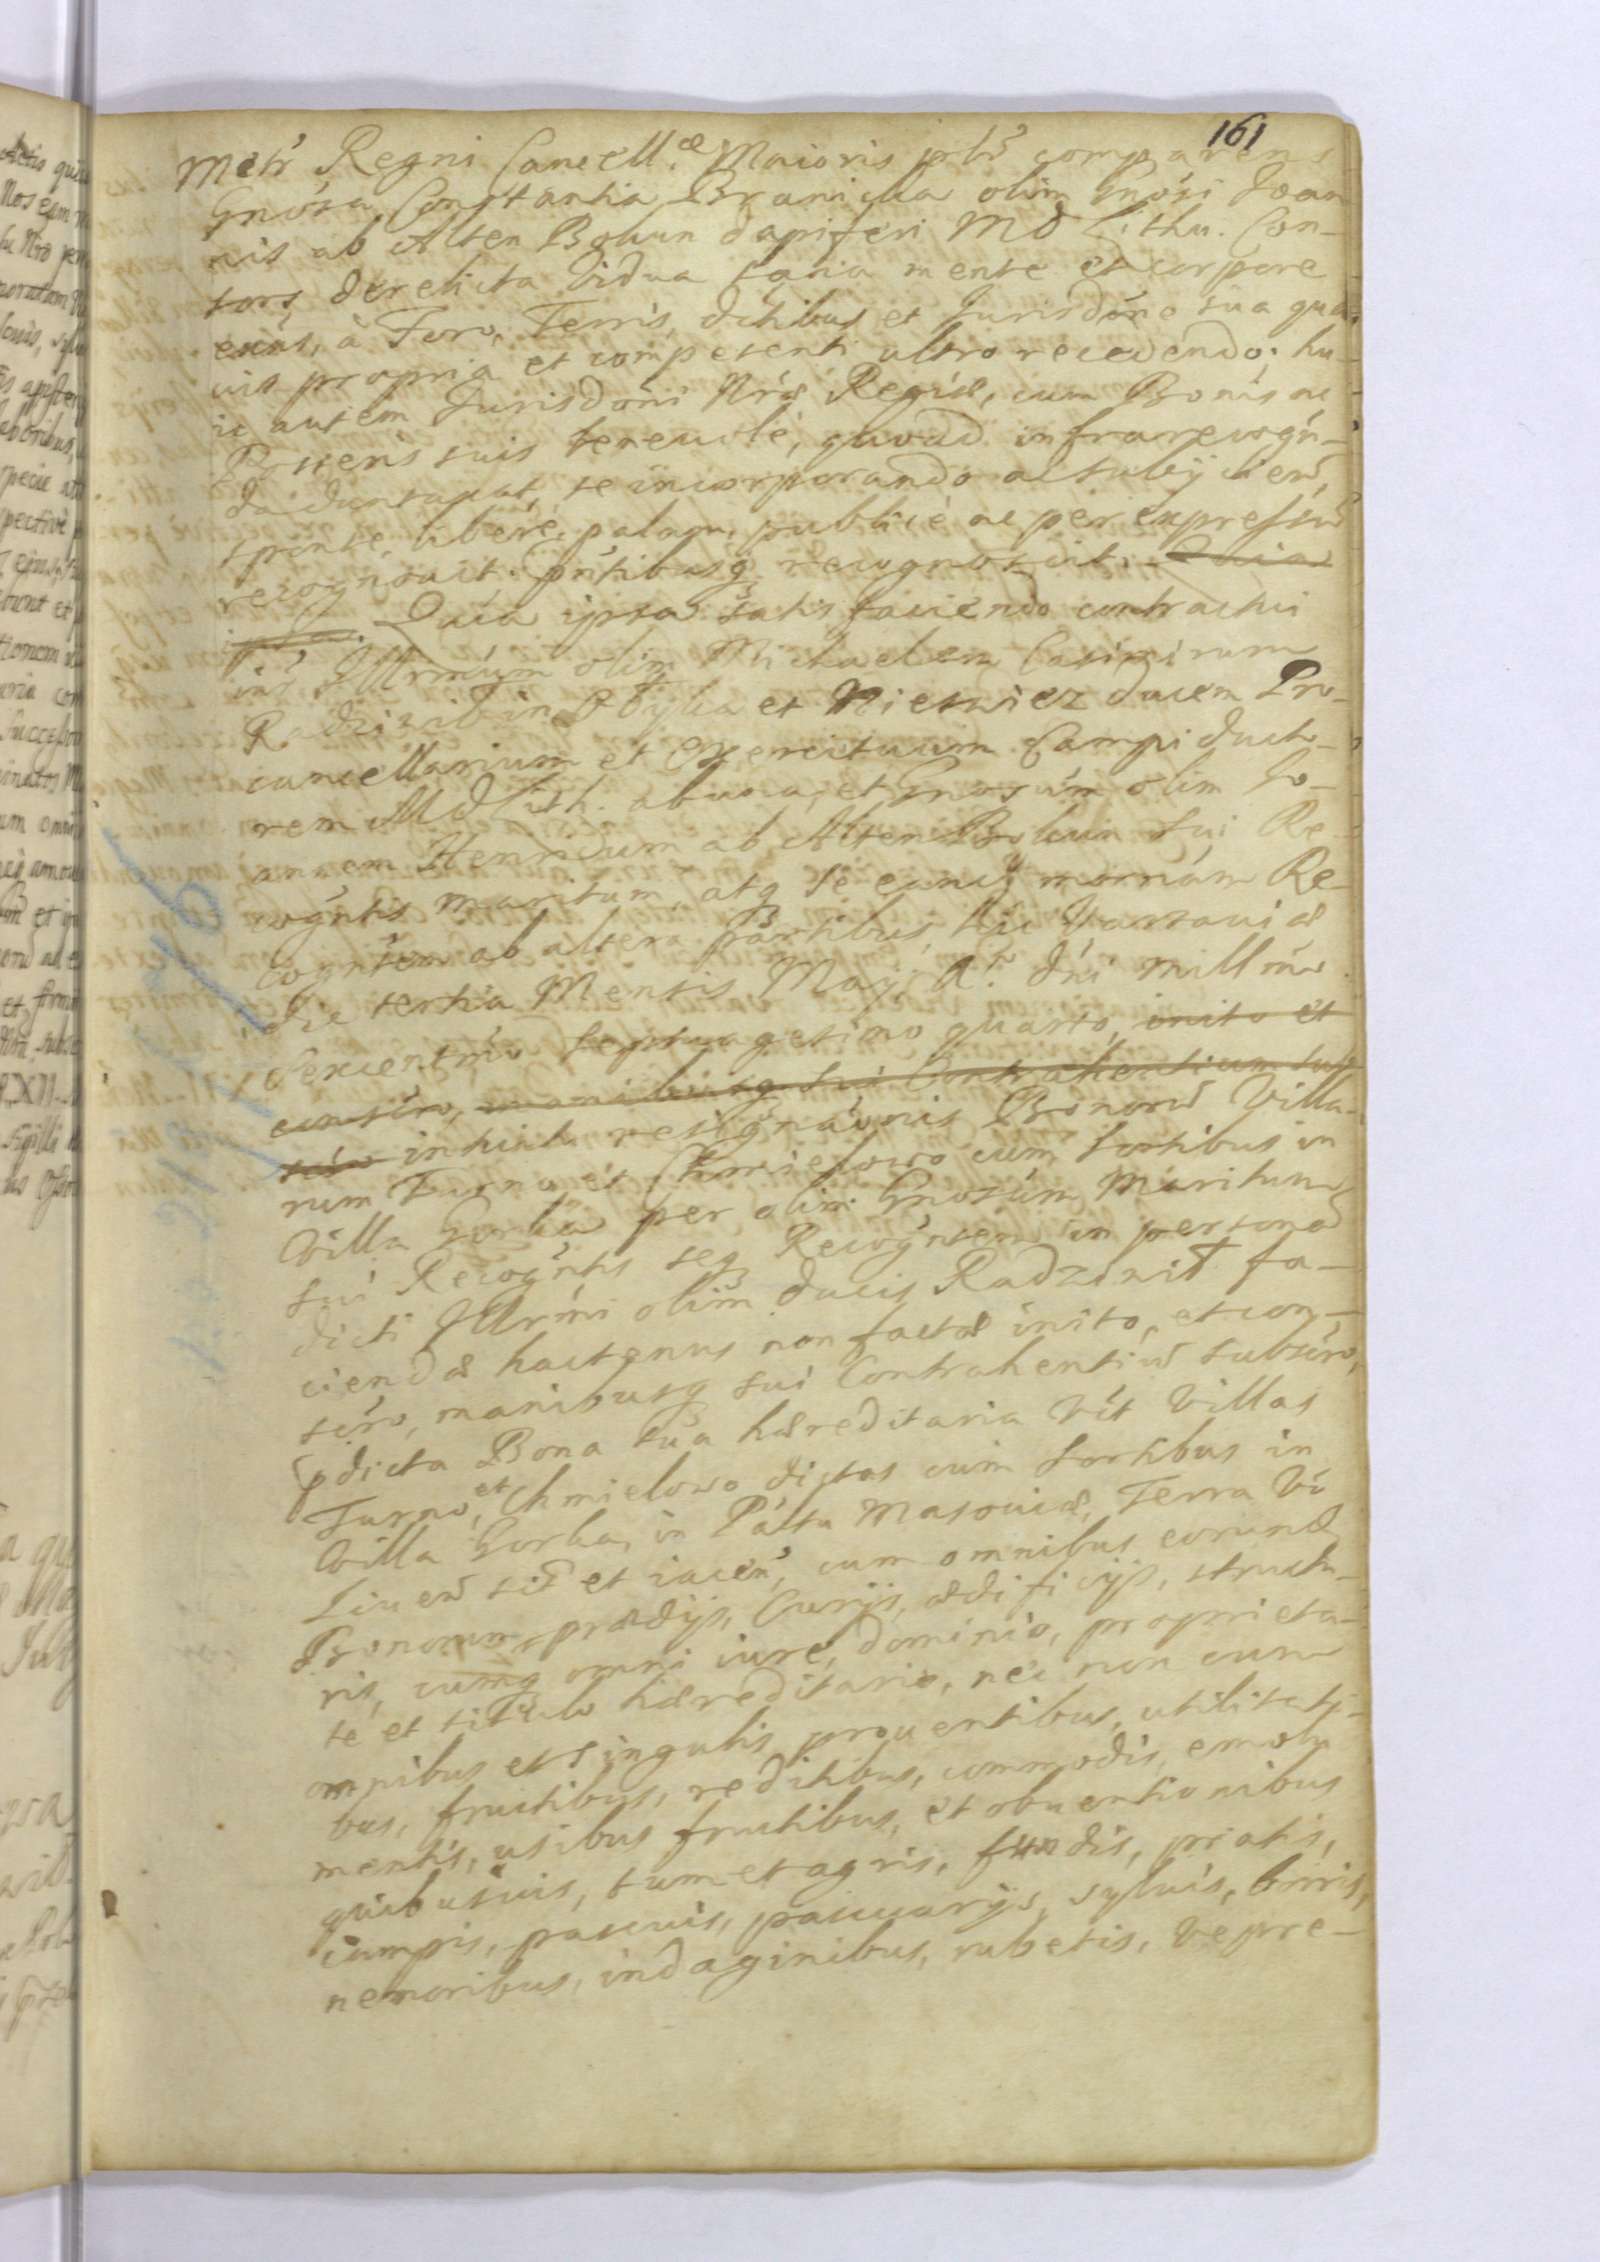 161
Metr Regni Cancell.æ Maioris plr comparens
Gnosa Constantia Branicka olim Gnosi Joan
nis ab Alten Bokun dapiferi M D Lithu. Con-
sors derelicta Vidua sana mente et corpore
exns, à Foro, Terris, dctibus et Jurisdone sua qua-
uis propria et competenti ultro recedendo, hu-
ic autem Jurisdoni Nræ Regiæ, cum Bonis ac
Posseris suis beneuole, quoad infrarecogn-
da duntaxat, se incorporando ac subijcien,
sponte, libere, palam, publice ac per expressu
recognouit. Pntibusq recognoscit. Quia
ipsa. Quia ipsa satis faciendo contractui
int Illrmum olim Michaelem Casimirum
Radziwil in Ołyka et Nieswiez ducem Pro-
cancellarium et Exercituum Campi ducto-
rem M D Lith. ab una, et Gnosum olim Jo-
annem Henricum ab Alten Bokun sui Re-
cogntis maritum, atq se eamq mornam Re-
cogntem ab altera partibus, hic Varsauiæ
die tertia Mensis Maij A. dni millmo
sexcentmo septuagesimo quarto, inito et
consero, manibusq sui Contrahentium sub
scro intuitu resignaonis Bonoru Villa-
rum Turno et Chmielowo cum sortibus in
Villa Gorka per olim Gnosum Maritum
sui Recogntis seq Recogntem in persona
dicti Illrmi olim ducis Radziwił fa-
ciendæ hactenus non factæ inito, et con-
scro, manibusq sui Contrahentiu subscro,
pdicta Bona sua hæreditaria vct Villas
Turno, et Chmielowo dictas cum sortibus in
Villa Gorka, in Pattu Masouiæ, Terra Vo
Liuen sit et iacen, cum omnibus eorund
Bonorum prædijs, Curijs, ædificijs, structu-
ris, cumq omni iure, dominio, proprieta-
te et titulo hæreditario, nec non cum
omnibus et singulis prouentibus, utilitati-
bus, fructibus, reditibus, commodis, emolu
mentis, usibus fructibus, et obuentionibus
quibusuis, tum et agris, fundis, pratis,
campis, pascuis, pascuarijs, syluis, borris,
nemoribus, indaginibus, rubetis, vepre-